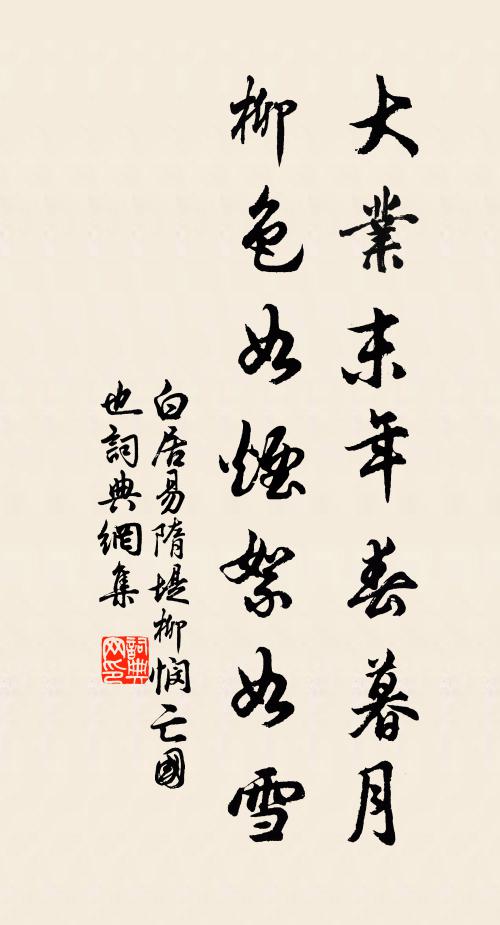 大業末年春暮月
柳色如煙絮如雪
白居易隋堤柳憫亡國
也詞典網集
詞典網印